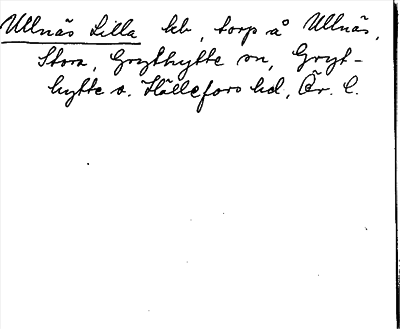 Ullnäs Lilla kb, torp å Ullnäs,
Stora, Grythytte sn, Gryt-
hytte o. Hällefors hd, Ör. l.